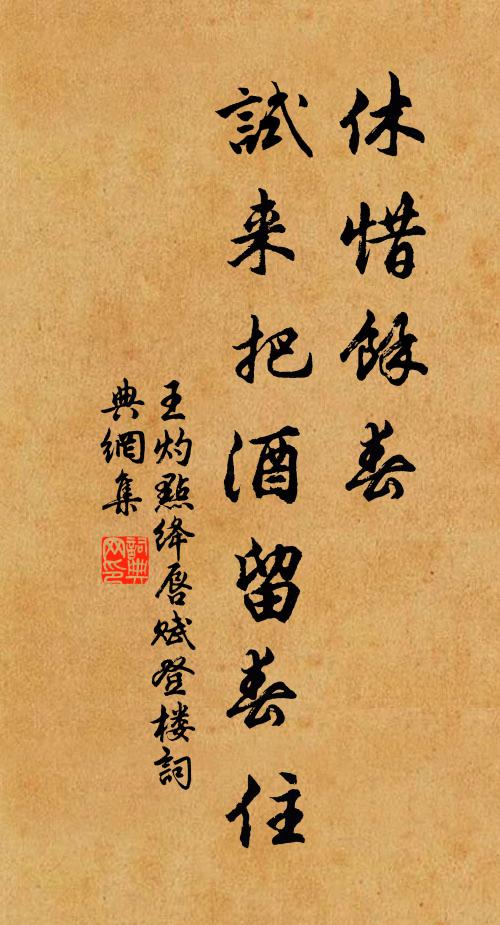 休惜餘春
試来把酒留春住
王灼點绛唇赋登楼詞
典網集
詞典网印